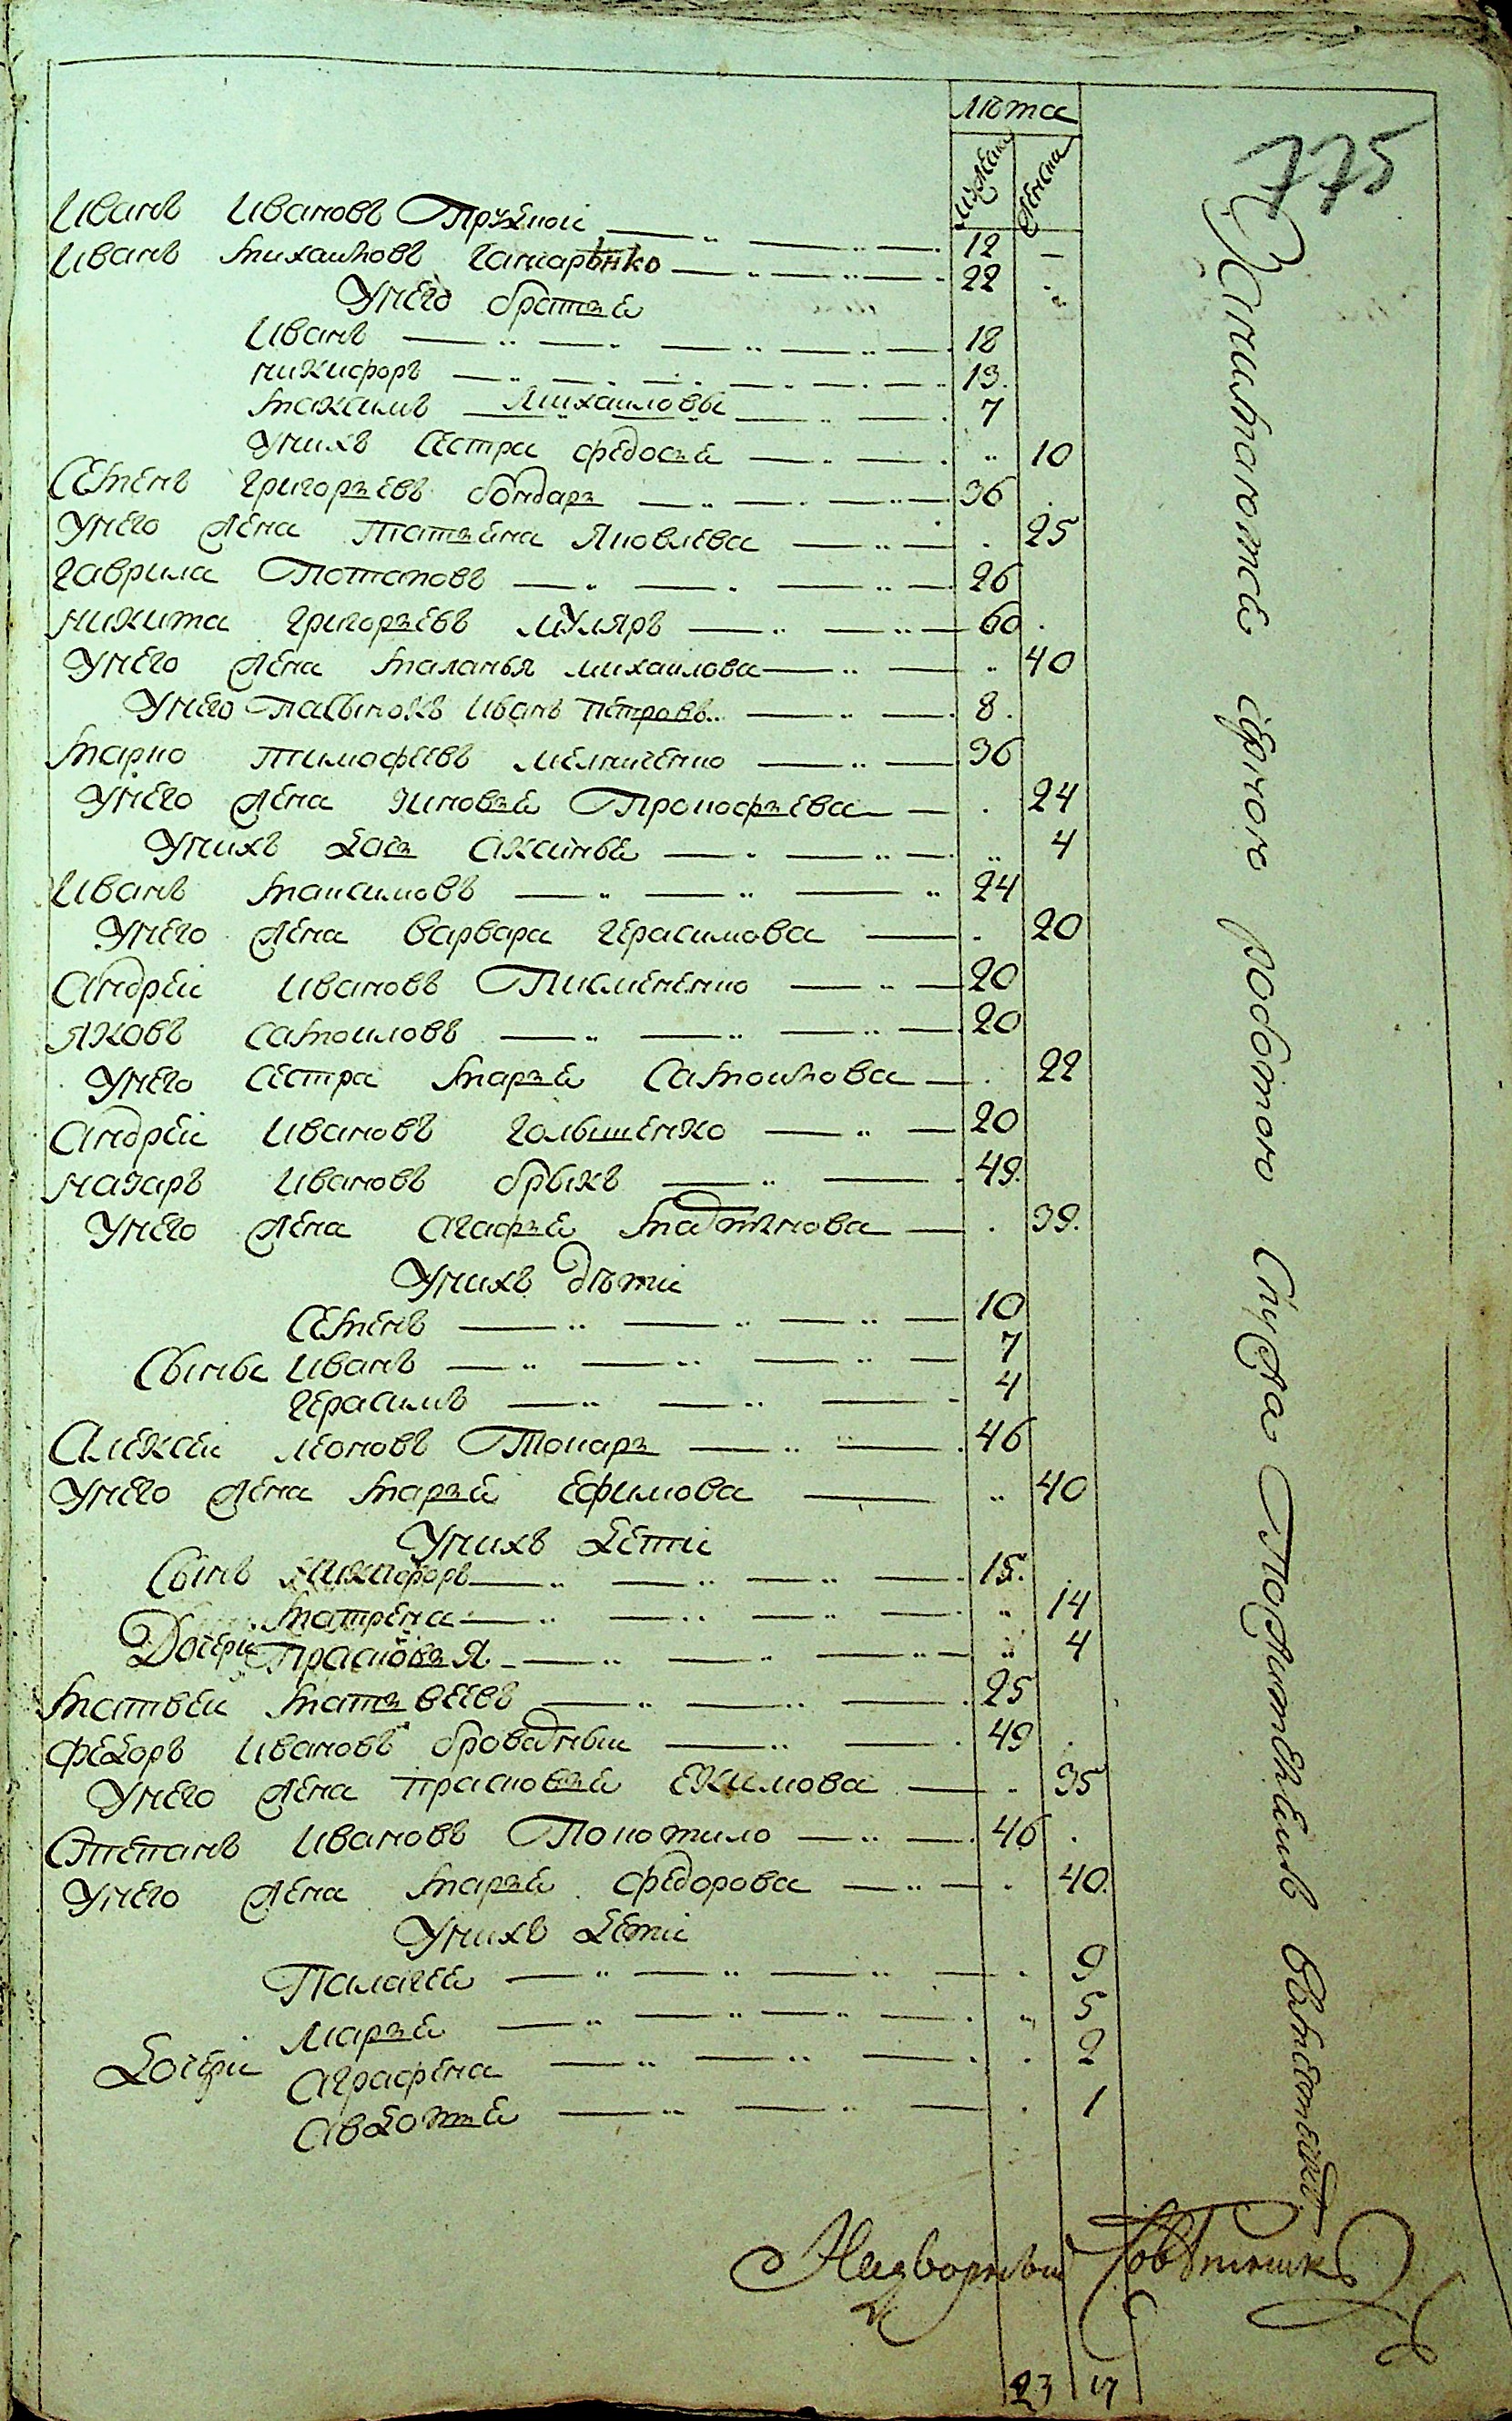 775
Лѣта
мужск
женск
Иванъ Ивановъ Прудкой 12 —
Иванъ Михайловъ Гончаренко 22
У него братья
Иванъ 18
Никифоръ 13
Макаимъ Михаиловы 7
У нихъ сестра Федосья 10
Семенъ Григорьевъ бондарь 36
У него жена Татьяна Яковлева 25
Гаврила Потаповъ 26
Никита Григорьевъ муляръ 60
У него жена Маланья Михаилова 40
У него пасынокъ Иванъ Петровъ 8
Марко Тимофеевъ Мелниченко 36
У него жена Зиновья Прокофьева 24
У нихъ дочь Акаинья 4
Иванъ Максимовъ 24
У него жена Варвара Герасимова 20
Андрей Ивановъ Писмененко 20
Яковъ Самоиловъ 20
У него сестра Марья Самоилова 22
Андрей Ивановъ Голышенко 20
Назаръ Ивановъ брыкъ 49
У него жена Агафья Мартинова 39
У нихъ дѣти
Семенъ 10
Сыны Иванъ 7
Герасимъ 4
Алексей Леоновъ Токарь 46
У него жена Марья Ефимова 40
У нихъ дети
Сынъ Никифоръ 15
Матрена 14
Дочери Прасковья 4
Матвей Матьвеевъ 25
Федоръ Ивановъ бровадный 49
У него жена Прасковья Екимова 35
Степанъ Ивановъ Покотило 46
У него жена Марья Федорова 40
У нихъ дети
Палагея 9
Марья 5
Дочери Аграфена 2
Авдотья 1
Занимаются черною роботою служа По житѣлямъ
Надворный Совѣтникъ
23 17